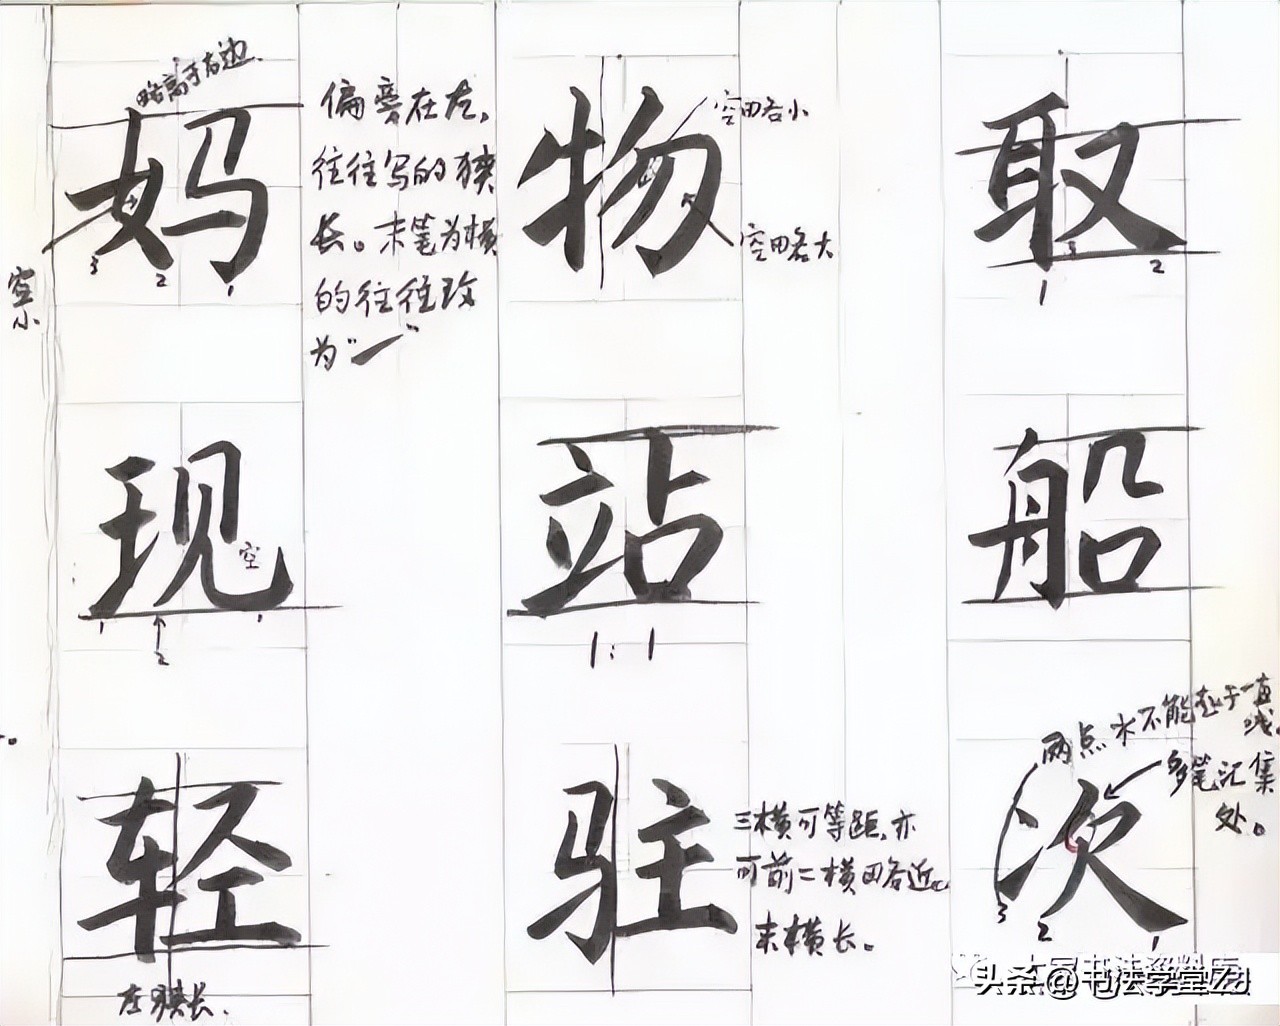 略高于右边
妈
空小
3 2 1
偏旁在左,
往往写的狭
长。末笔为横
的往往改
为"㇀"
物
空略小
空略大
取
1 3 2
现
空
1 2 1
站
1:1
船
轻
左狭长.
驻
三横可等距,亦
可前二横略近。
末横长。
次
两点水不能处于一直
线。
多笔汇集
处。
3 2 1
头条@书法学堂Zd